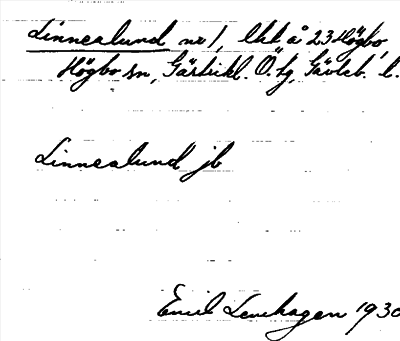 Linnealund nr 1, lht å 23 Högbo,
Högbo sn, Gästrikl. Ö. tg, Gävleb. l.
Linnealund jb
Emil Lenhagen 1930